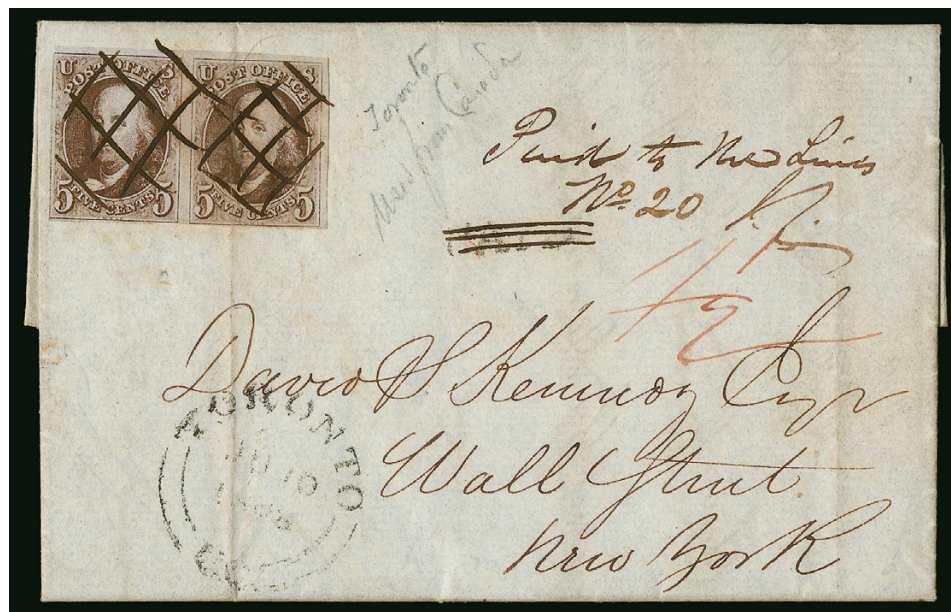 U S
POST OFFICE
5 FIVE CENTS 5
U S
POST OFFICE
5 FIVE CENTS 5
Toronto
Used from Canada
Paid to the Lines
No. 20
4½
David S Kennedy Esqr
Wall Street
New York
TORONTO
10